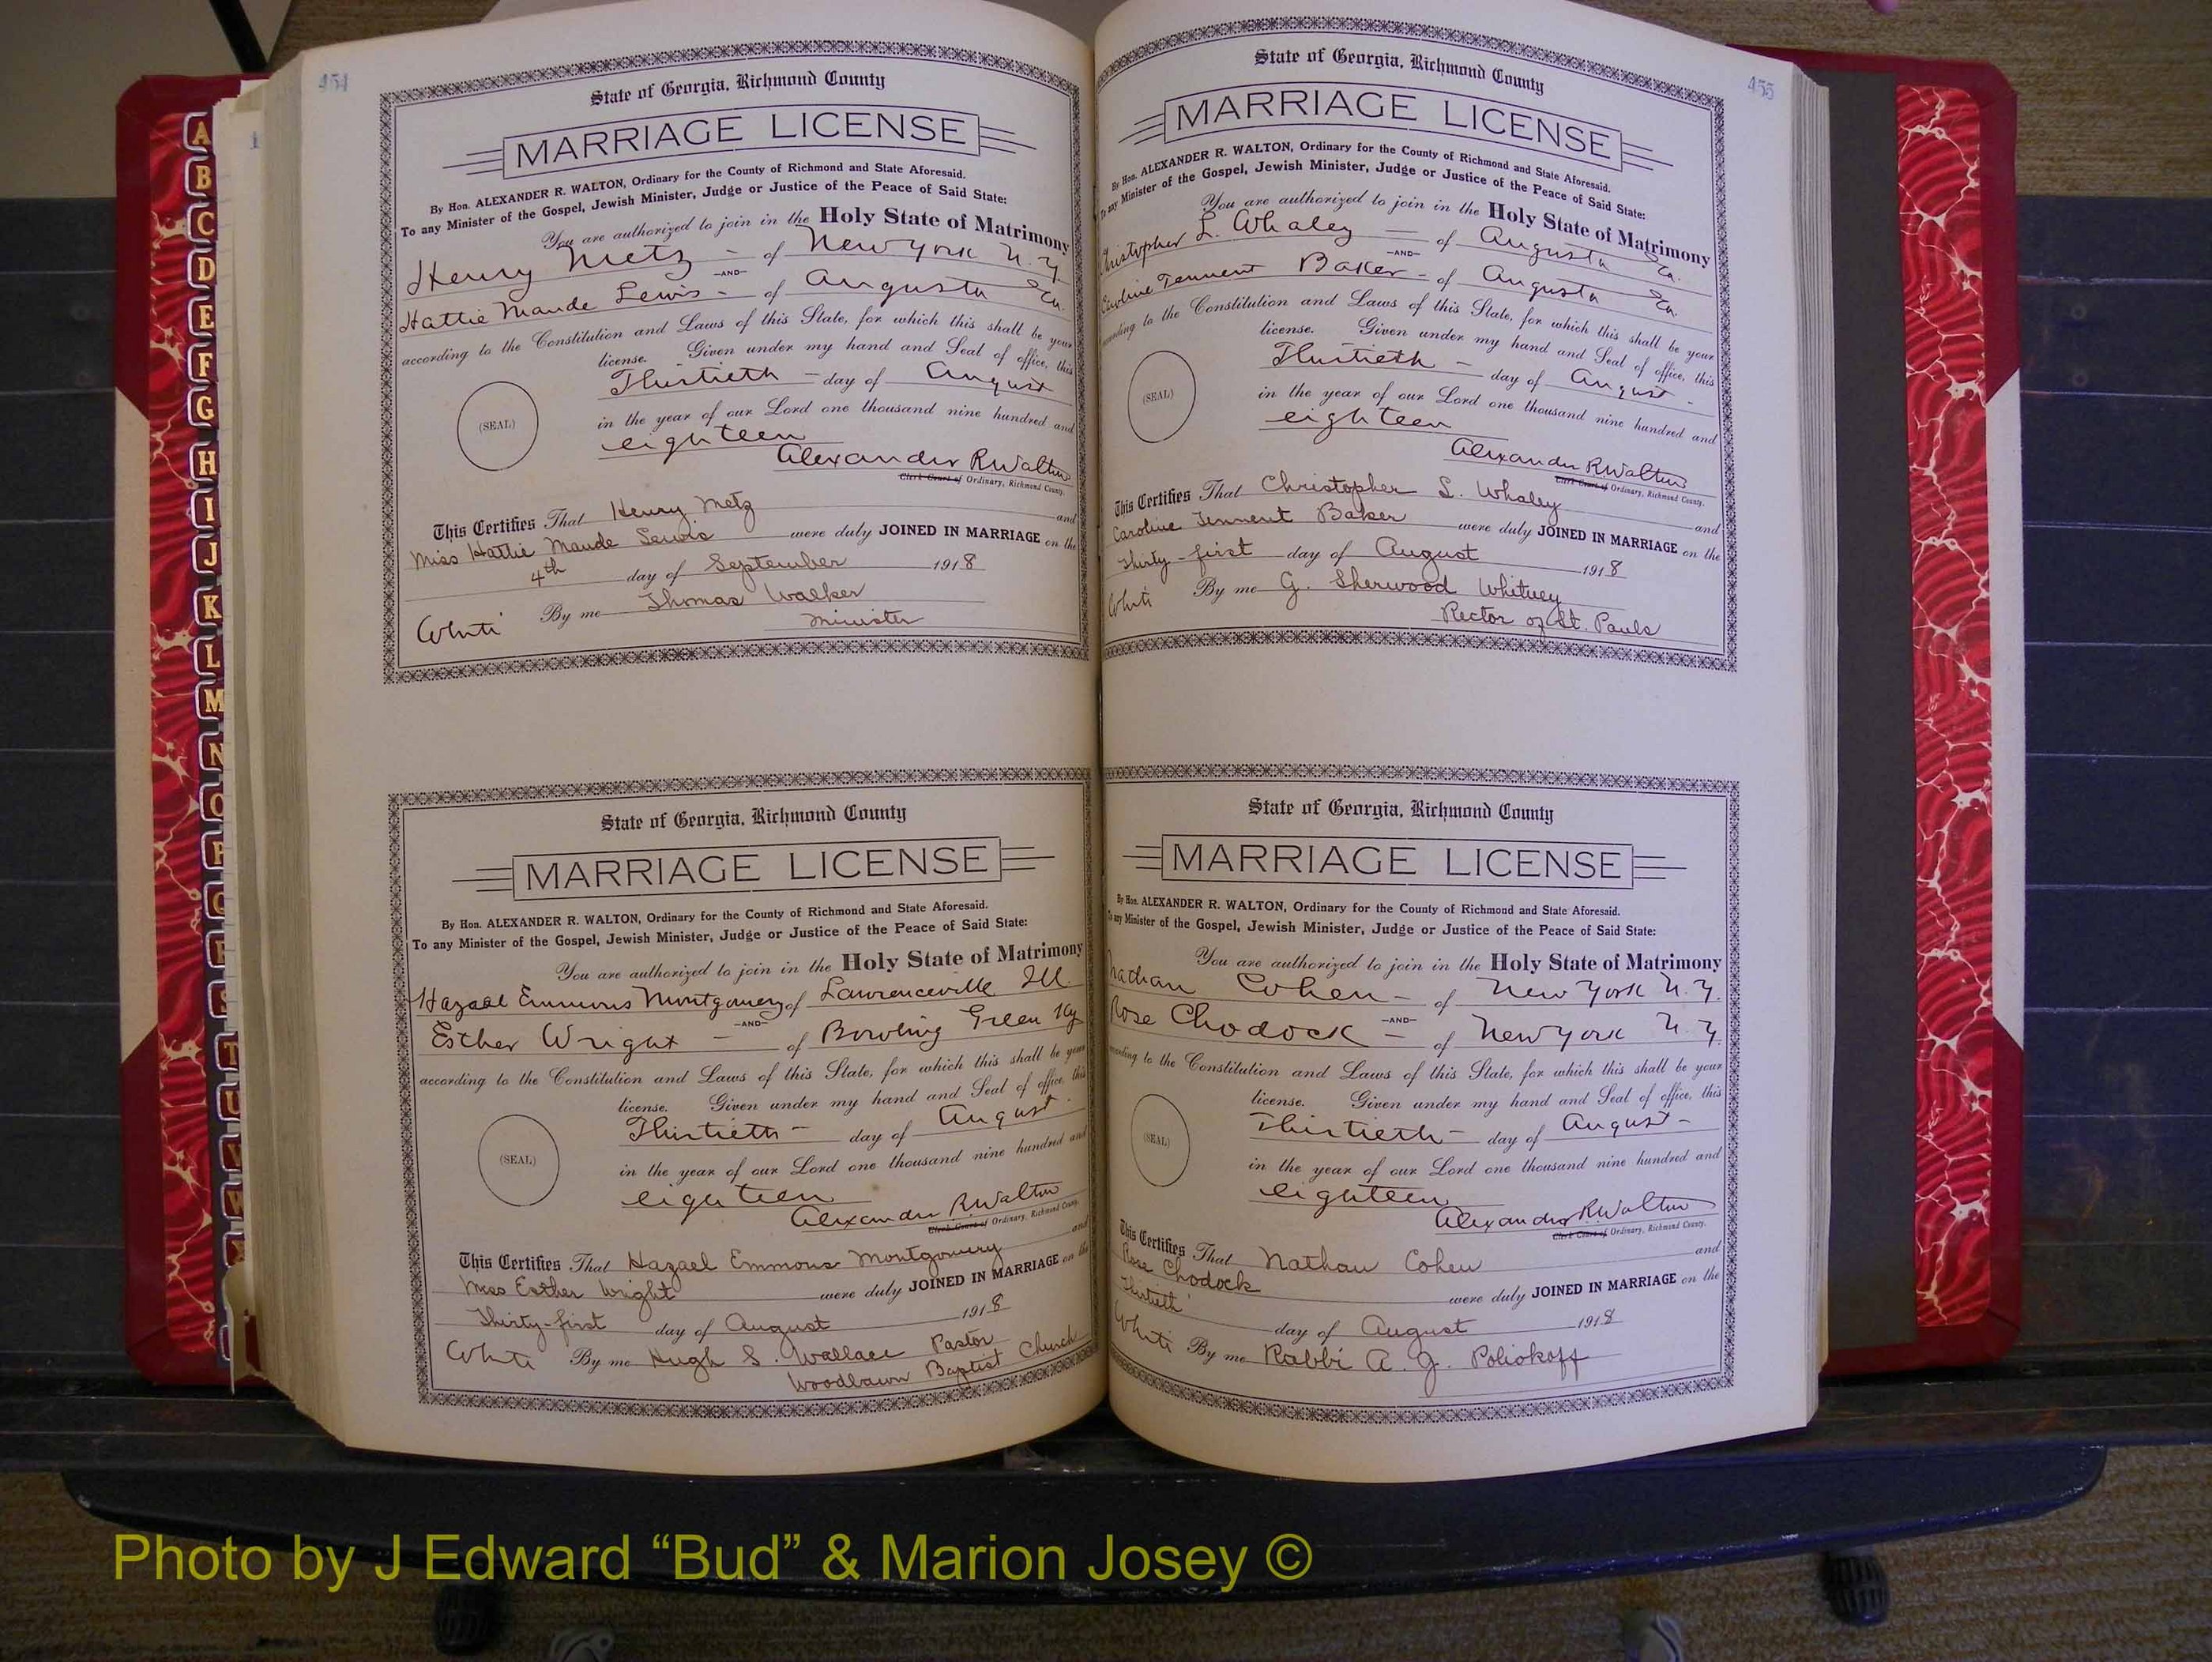 454
State of Georgia, Richmond County
MARRIAGE LICENSE
By Hon. ALEXANDER R. WALTON, Ordinary for the County of Richmond and State Aforesaid.
To any Minister of the Gospel, Jewish Minister, Judge or Justice of the Peace of Said State:
You are authorized to join in the Holy State of Matrimony
Henry Metz - of New York N.Y.
-AND-
Hattie Maude Lewis - of Augusta Ga.
according to the Constitution and Laws of this State, for which this shall be your
license. Given under my hand and Seal of office, this
Thirtieth - day of August
(SEAL)
in the year of our Lord one thousand nine hundred and
eighteen
Alexander R Walton
Clerk Court of Ordinary, Richmond County.
This Certifies That Henry Metz and
Miss Hattie Maude Lewis were duly JOINED IN MARRIAGE on the
4th day of September 1918
White By me Thomas Walker
Minister
State of Georgia, Richmond County
MARRIAGE LICENSE
By Hon. ALEXANDER R. WALTON, Ordinary for the County of Richmond and State Aforesaid.
To any Minister of the Gospel, Jewish Minister, Judge or Justice of the Peace of Said State:
You are authorized to join in the Holy State of Matrimony
Hazael Emmons Montgomery of Lawrenceville Ill.
-AND-
Esther Wright - of Bowling Green Ky
according to the Constitution and Laws of this State, for which this shall be your
license. Given under my hand and Seal of office, this
Thirtieth - day of August
(SEAL)
in the year of our Lord one thousand nine hundred and
eighteen
Alexander R. Walton
Clerk Court of Ordinary, Richmond County.
This Certifies That Hazael Emmons Montgomery and
Miss Esther Wright were duly JOINED IN MARRIAGE on the
Thirty-first day of August 1918
White By me Hugh S. Wallace Pastor
Woodlawn Baptist Church
455
State of Georgia, Richmond County
MARRIAGE LICENSE
By Hon. ALEXANDER R. WALTON, Ordinary for the County of Richmond and State Aforesaid.
To any Minister of the Gospel, Jewish Minister, Judge or Justice of the Peace of Said State:
You are authorized to join in the Holy State of Matrimony
Christopher L. Whaley - of Augusta Ga.
-AND-
Caroline Tennent Baker - of Augusta Ga.
according to the Constitution and Laws of this State, for which this shall be your
license. Given under my hand and Seal of office, this
Thirtieth - day of August -
(SEAL)
in the year of our Lord one thousand nine hundred and
eighteen
Alexander R Walton
Clerk Court of Ordinary, Richmond County.
This Certifies That Christopher L. Whaley and
Caroline Tennent Baker were duly JOINED IN MARRIAGE on the
Thirty-first day of August 1918
White By me G. Sherwood Whitney
Rector of St. Pauls
State of Georgia, Richmond County
MARRIAGE LICENSE
By Hon. ALEXANDER R. WALTON, Ordinary for the County of Richmond and State Aforesaid.
To any Minister of the Gospel, Jewish Minister, Judge or Justice of the Peace of Said State:
You are authorized to join in the Holy State of Matrimony
Nathan Cohen - of New York N.Y.
-AND-
Rose Chodock - of New York N.Y.
according to the Constitution and Laws of this State, for which this shall be your
license. Given under my hand and Seal of office, this
Thirtieth - day of August -
(SEAL)
in the year of our Lord one thousand nine hundred and
eighteen
Alexander R. Walton
Clerk Court of Ordinary, Richmond County.
This Certifies That Nathan Cohen and
Rose Chodock were duly JOINED IN MARRIAGE on the
Thirtieth day of August 1918
White By me Rabbi A. J. Poliokoff
A
B
C
D
E
F
G
H
I
J
K
L
M
N
O
P
Q
R
S
T
U
V
W
Photo by J Edward “Bud” & Marion Josey ©